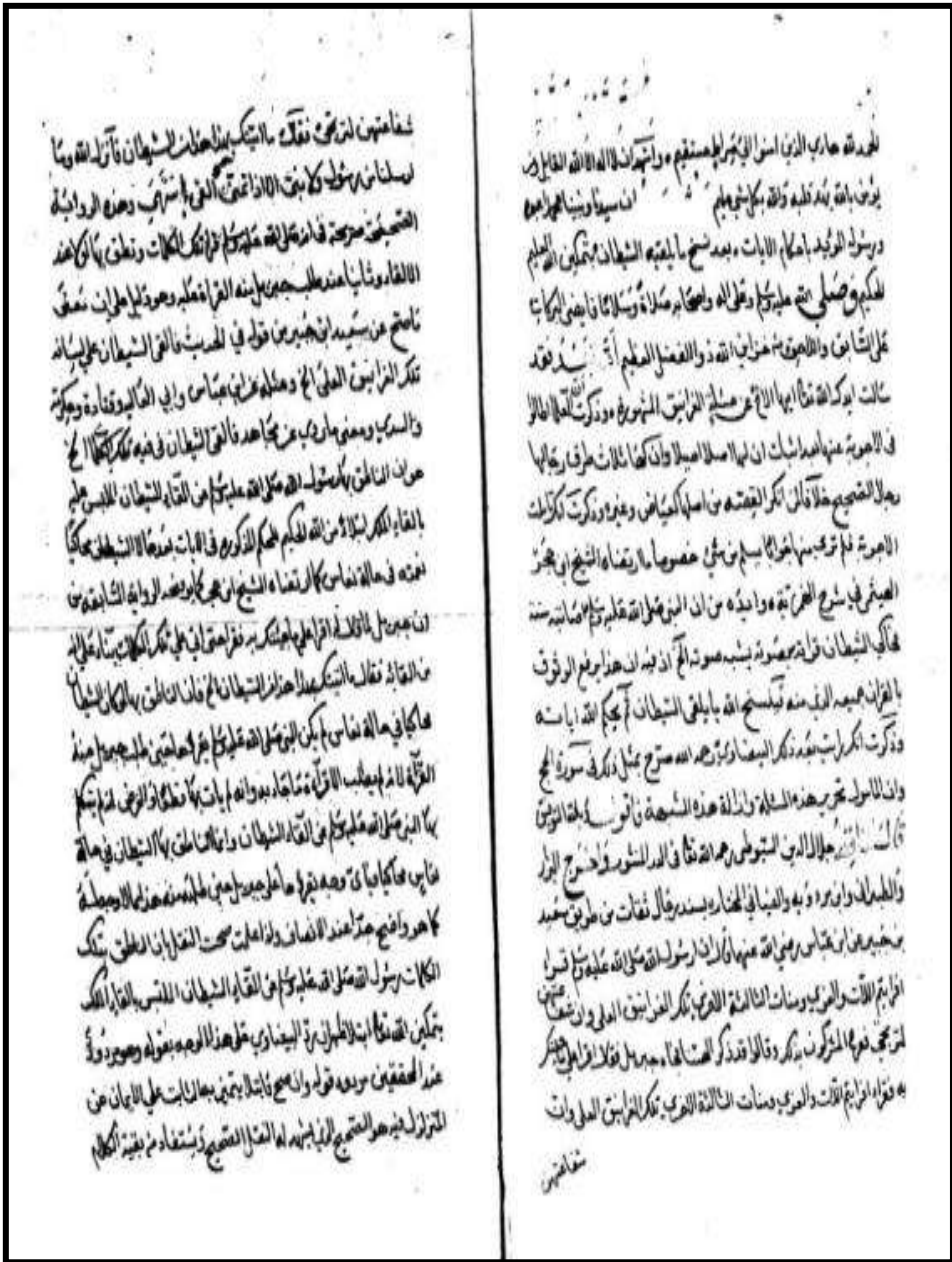 الحمد لله هادي الذين امنوا الي صراط مستقيم واشهد ان لا اله الا الله القايل ومن
يؤمن بالله يهد قلبه والله بكل شي عليم ان سيدنا ونبينا محمدا عبده
ورسوله المؤيد باحكام الايات بعد نسخ ما يلقيه الشيطان بتمكين الله العليم
الحكيم صلى الله عليه وسلم وعلى اله واصحابه صلاة وسلاما فايضي البركات
على السابق واللاحق من خزاين الله ذو الفضل العظيم اما بعد فقد
سالت ايدك الله تعالى ايها الاخ عن مسئلة الغرانيق المشهورة وذكرت ان العلما اطالوا
في الاجوبة عنها بعد اثبات ان لها اصلا اصيلا وان لها ثلاث طرق رجالها
رجال الصحيح خلافا لمن انكر القصة من اصلها كعياض وغيره وذكرت انك رايت
الاجوبة فلم تر فيها جوابا يسلم من شي خصوصا ما ارتضاه الشيخ ابن حجر
الهيتمي في شرح الهمزية وايده من ان النبي صلى الله عليه وسلم اصابته سنة
فحاكي الشيطان قراءته بصوت يشبه صوته الخ اذ فيه ان هذا يرفع الوثوق
بالقران جميعه فينسخ الله ما يلقي الشيطان ثم يحكم الله اياته
وذكرت انك رايت بعد ذلك البيضاوي رحمه الله صرح بمثل ذلك في سورة الحج
وان المامول تحرير هذه المسئلة وازالة هذه الشبهة فاقول وبالله التوفيق
قال جلال الدين السيوطي رحمه الله تعالى في الدر المنثور واخرج البزار
والطبراني وابن مردويه والضيا في المختارة بسند رجال ثقات من طريق سعيد
بن جبير عن ابن عباس رضي الله عنهما قال ان رسول الله صلى الله عليه وسلم قرا
افرايتم اللات والعزي ومنات الثالثة الاخري تلك الغرانيق العلي وان شفاعتهن
لترتجي ففرح المشركون بذلك وقالوا قد ذكر الهتنا فجاءه جبريل فقال اقرا علي ما جئتك
به فقرا افرايتم اللات والعزي ومنات الثالثة الاخري تلك الغرانيق العلي وان
شفاعتهن
شفاعتهن لترتجي فقال ما اتيتك بهذا هذا من الشيطان فانزل الله وما
ارسلنا من رسول ولا نبي الا اذا تمنى القى انتهى وهذه الرواية
الصحيحة صريحة في انه صلى الله عليه وسلم قرا تلك الكلمات ونطق بها اولا عند
الالقاء وثانيا عند طلب جبريل منه القراءة عليه وهو دليل علي ان معنى
ما صح عن سعيد ابن جبير من قوله في الحديث فالقى الشيطان علي لسانه
تلك الغرانيق العلى الخ ومثله عن ابن عباس وابي العالية وقتادة وعكرمة
والسدي ومعنى ما روي عن مجاهد فالقى الشيطان في فيه تلك الخ
هو ان الناطق بها رسول الله صلى الله عليه وسلم عن القاء الشيطان الملبس عليه
بالقاء الملك ابتلاء من الله الحكيم للحكم المذكورة في الايات بعدها لا الشيطان محاكيا
نغمته في حالة نعاس كما ارتضاه الشيخ ابن حجر كما يوضحه الرواية السابقة من
ان جبريل قال له اقرا علي ما جئتك به فقرا حتى اتي علي تلك الكلمات بناء علي انه
من القائه فقال ما اتيتك بهذا هذا من الشيطان الخ فلو ان الناطق بها كان الشيطان
محاكيا في حالة نعاس لم يكن النبي صلى الله عليه وسلم يقراها حين طلب جبريل منه
القراءة لانه لم يطلب الا قراءة ما جاء به وانه لم يات بها والفرض انه لم يتكلم
بها النبي صلى الله عليه وسلم عن القاء الشيطان وانما الناطق بها الشيطان في حالة
نعاس محاكيا فباي وجه يقراها علي جبريل حين طلبه منه هذا ما لا وجه له
كما هو واضح جدا عند الانصاف واذا علمت صحت النقل بان الناطق بتلك
الكلمات رسول الله صلى الله عليه وسلم عن القاء الشيطان الملبس بالقاء الملك
بتمكين الله تعالى ابتلاء ظهر ان رد البيضاوي علي هذا الوجه بقوله وهو مردود
عند المحققين مردود قوله وان صح فابتلاء يتميز به الثابت علي الايمان عن
المتزلزل فيه هو الصحيح الذي يشهد له النقل الصحيح ويستفاد من بقية الكلام